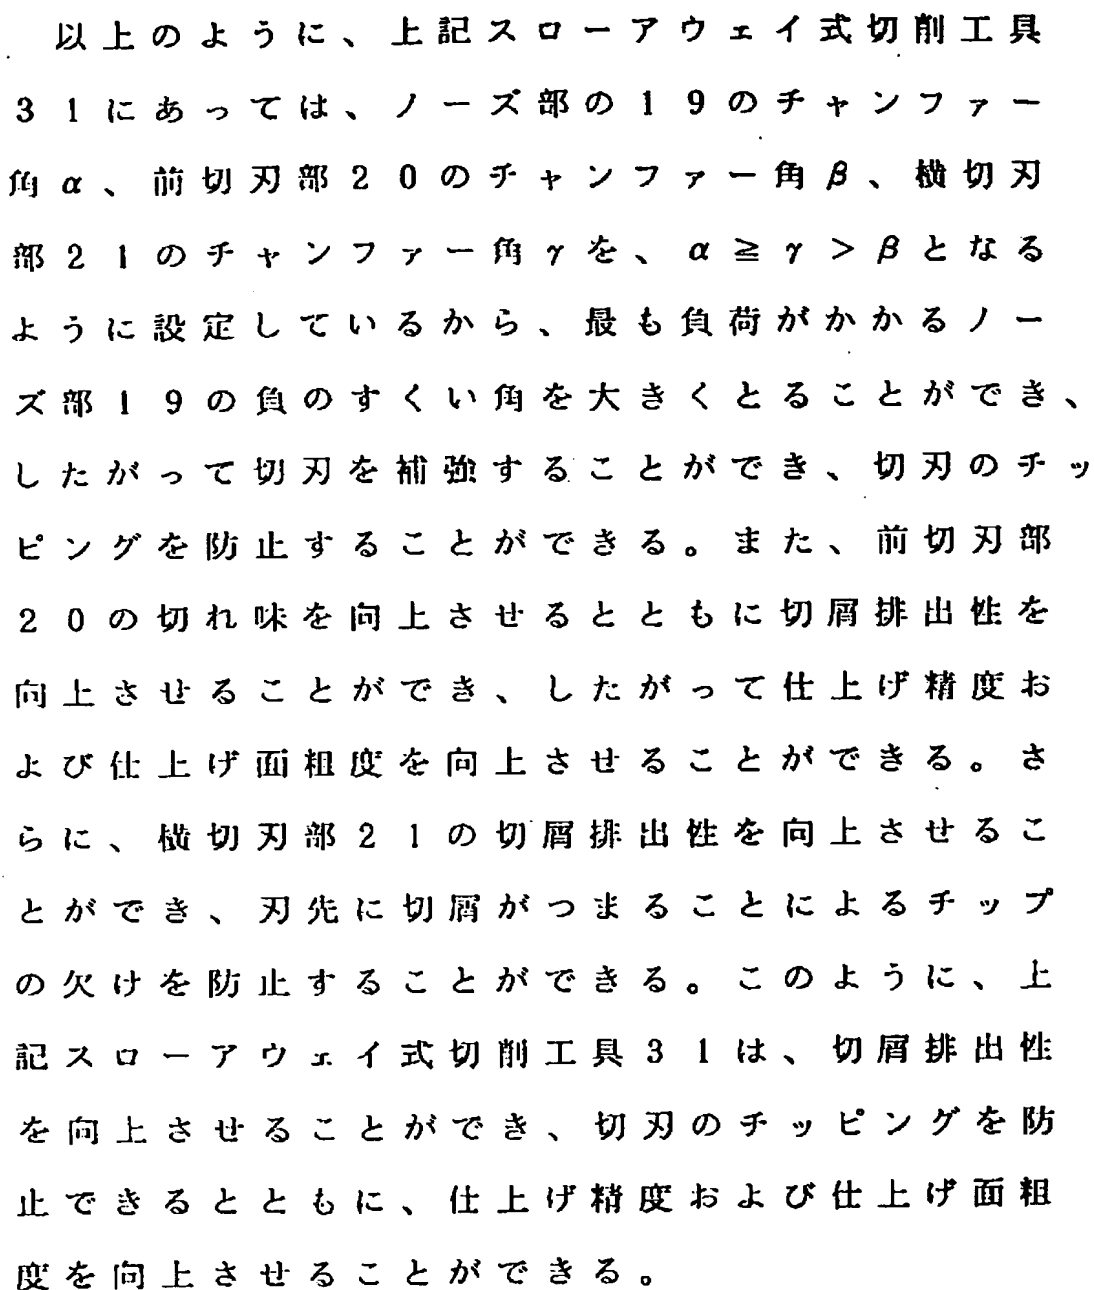 以上のように、上記スローアウェイ式切削工具
31にあっては、ノーズ部の19のチャンファー
角α、前切刃部20のチャンファー角β、横切刃
部21のチャンファー角γを、α≧γ>βとなる
ように設定しているから、最も負荷がかかるノー
ズ部19の負のすくい角を大きくとることができ、
したがって切刃を補強することができ、切刃のチッ
ピングを防止することができる。また、前切刃部
20の切れ味を向上させるとともに切屑排出性を
向上させることができ、したがって仕上げ精度お
よび仕上げ面粗度を向上させることができる。さ
らに、横切刃部21の切屑排出性を向上させるこ
とができ、刃先に切屑がつまることによるチップ
の欠けを防止することができる。このように、上
記スローアウェイ式切削工具31は、切屑排出性
を向上させることができ、切刃のチッピングを防
止できるとともに、仕上げ精度および仕上げ面粗
度を向上させることができる。